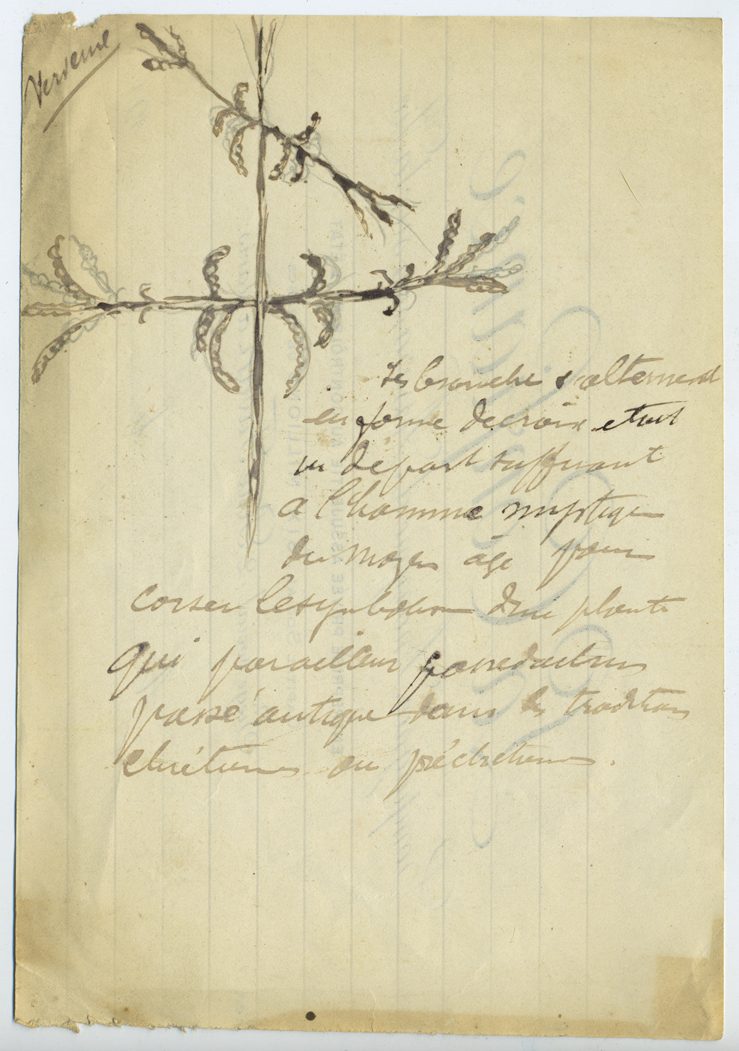 Verveine
Les branches s'alternent
en forme de croix et ont
un départ suffisant
à l'homme mystique
du moyen âge pour
corser le symbolisme d'une plante
qui par ailleurs
passé antique dans les traditions
chrétiennes ou préchrétiennes.